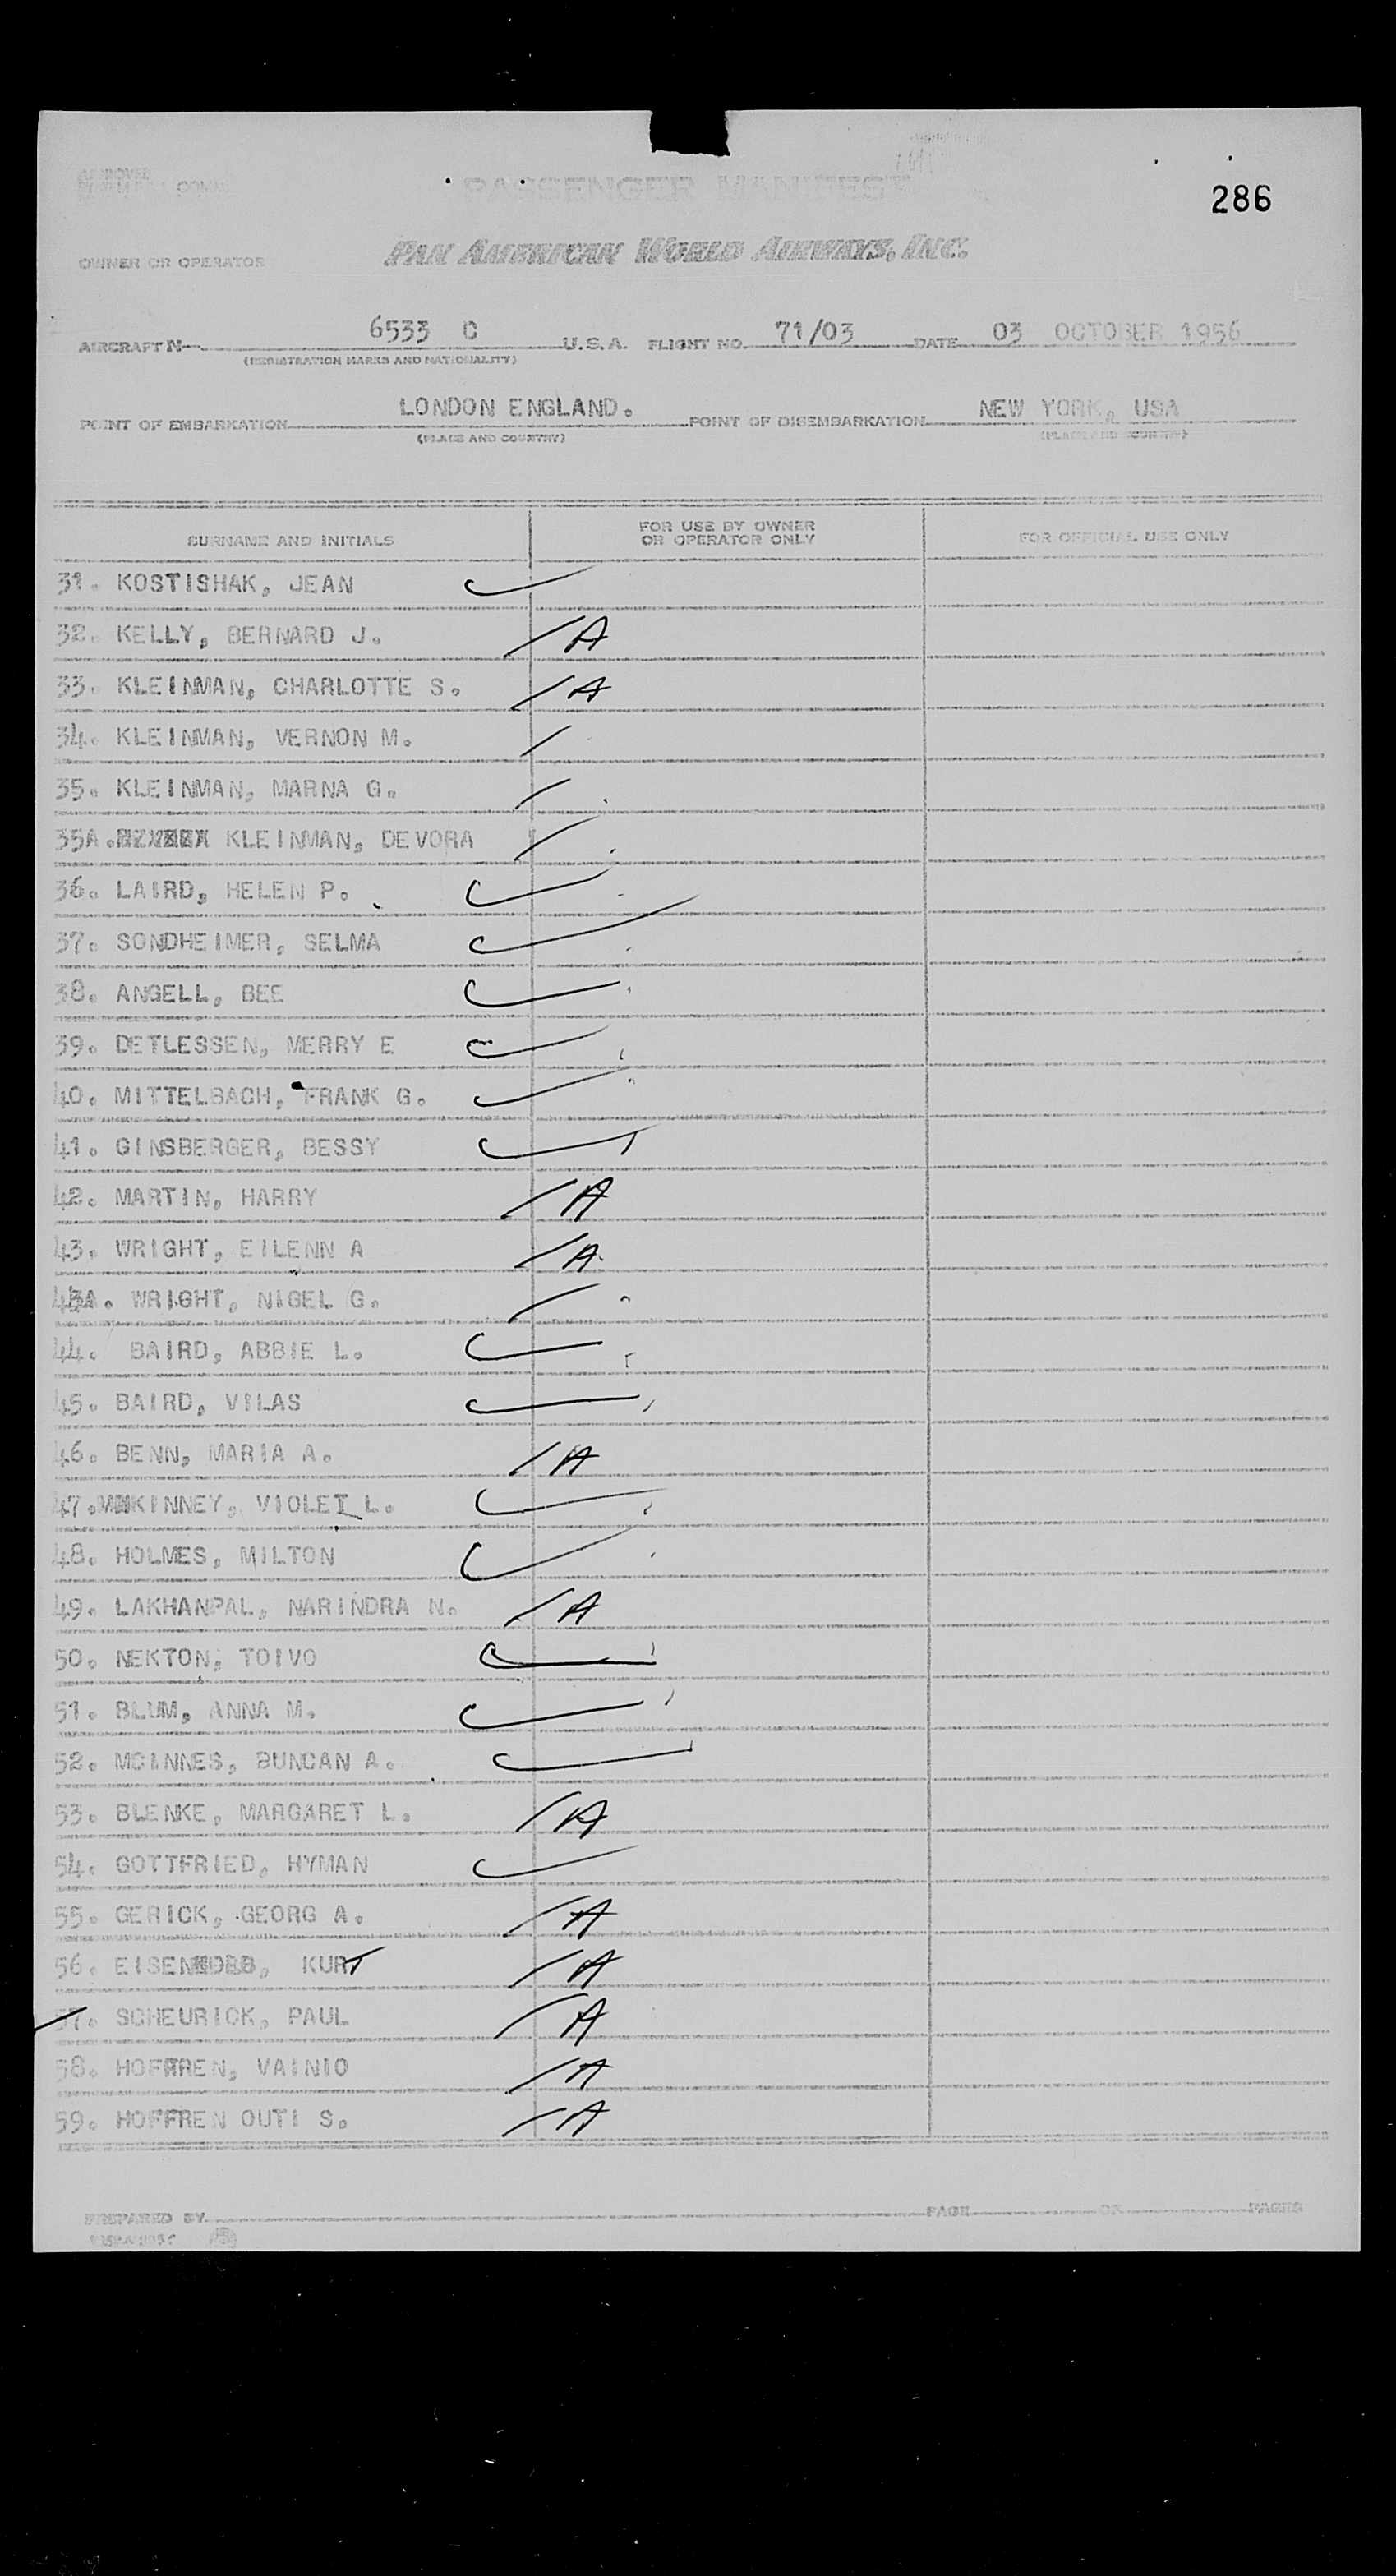 APPROVED
PASSENGER MANIFEST
286
OWNER OR OPERATOR PAN AMERICAN WORLD AIRWAYS, INC.
AIRCRAFT N 6533 C U.S.A. FLIGHT NO. 71/03 DATE 03 OCTOBER 1956
(REGISTRATION MARKS AND NATIONALITY)
POINT OF EMBARKATION LONDON ENGLAND. POINT OF DISEMBARKATION NEW YORK, USA
(PLACE AND COUNTRY) (PLACE AND COUNTRY)
SURNAME AND INITIALS FOR USE BY OWNER OR OPERATOR ONLY FOR OFFICIAL USE ONLY
31. KOSTISHAK, JEAN
32. KELLY, BERNARD J. A
33. KLEINMAN, CHARLOTTE S. A
34. KLEINMAN, VERNON M.
35. KLEINMAN, MARNA G.
35A. KLEINMAN, DEVORA
36. LAIRD, HELEN P.
37. SONDHEIMER, SELMA
38. ANGELL, BEE
39. DETLESSEN, MERRY E
40. MITTELBACH, FRANK G.
41. GINSBERGER, BESSY
42. MARTIN, HARRY A
43. WRIGHT, EILENN A A
43A. WRIGHT, NIGEL G.
44. BAIRD, ABBIE L.
45. BAIRD, VILAS
46. BENN, MARIA A. A
47. KINNEY, VIOLET L.
48. HOLMES, MILTON
49. LAKHANPAL, NARINDRA N. A
50. NEKTON, TOIVO
51. BLUM, ANNA M.
52. MCINNES, BUNCAN A.
53. BLENKE, MARGARET L. A
54. GOTTFRIED, HYMAN
55. GERICK, GEORG A. A
56. KURT A
57. SCHEURICK, PAUL A
58. HOFFREN, VAINIO A
59. HOFFREN OUTI S. A
PREPARED BY PAGE OF PAGES